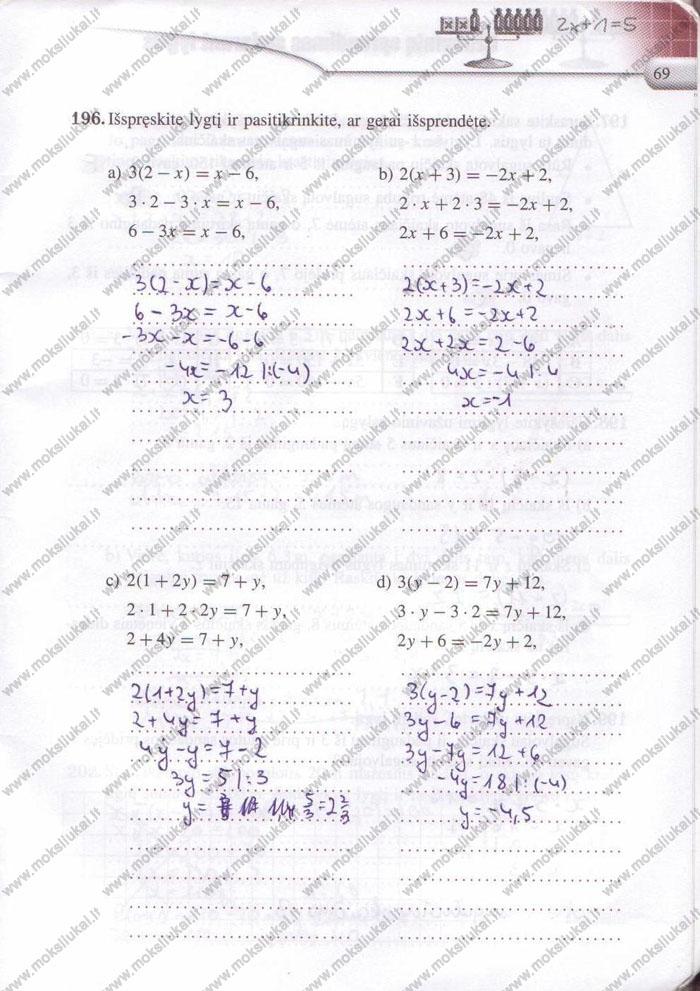 2x+1=5
69
196. Išspręskite lygtį ir pasitikrinkite, ar gerai išsprendėte.
a) 3(2 − x) = x − 6,
3 · 2 − 3 · x = x − 6,
6 − 3x = x − 6,
3(2-x)=x-6
6-3x=x-6
-3x-x=-6-6
-4x=-12 |:(-4)
x=3
b) 2(x + 3) = −2x + 2,
2 · x + 2 · 3 = −2x + 2,
2x + 6 = −2x + 2,
2(x+3)=-2x+2
2x+6=-2x+2
2x+2x=2-6
4x=-4 |:4
x=-1
c) 2(1 + 2y) = 7 + y,
2 · 1 + 2 · 2y = 7 + y,
2 + 4y = 7 + y,
2(1+2y)=7+y
2+4y=7+y
4y-y=7-2
3y=5 |:3
y= 5/3=2 2/3
d) 3(y − 2) = 7y + 12,
3 · y − 3 · 2 = 7y + 12,
2y + 6 = −2y + 2,
3(y-2)=7y+12
3y-6=7y+12
3y-7y=12+6
-4y=18 |:(-4)
y=-4,5
www.moksliukai.lt